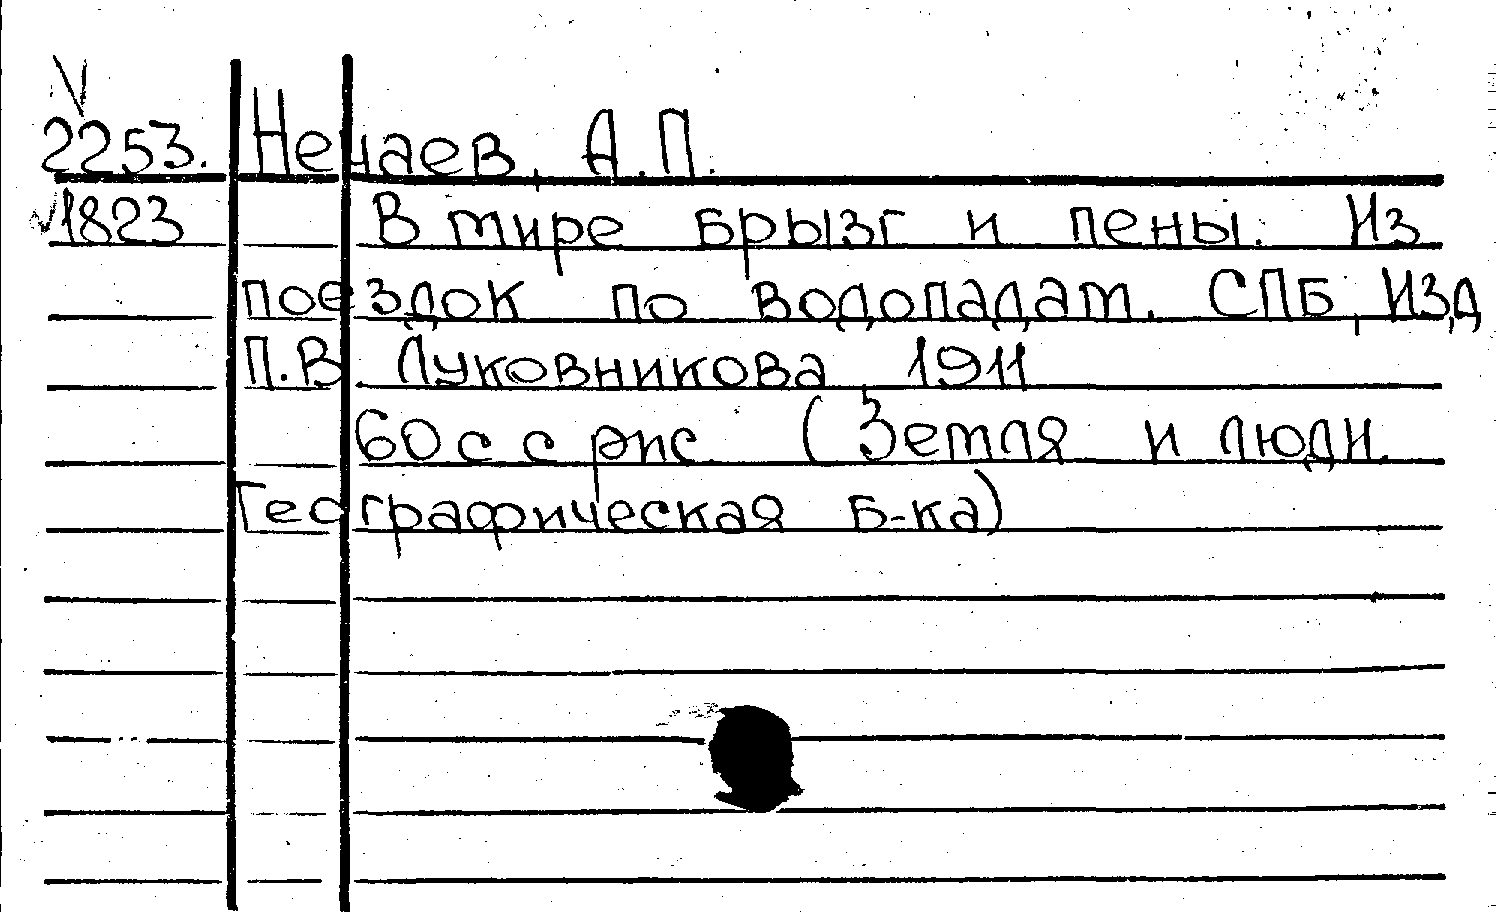 2253. Нечаев, А.П.
1823 В мире брызг и пены. Из
поездок по водопадам. СПБ, Изд
П.В Луковникова 1911
60 с с рис (Земля и люди.
Географическая б-ка)